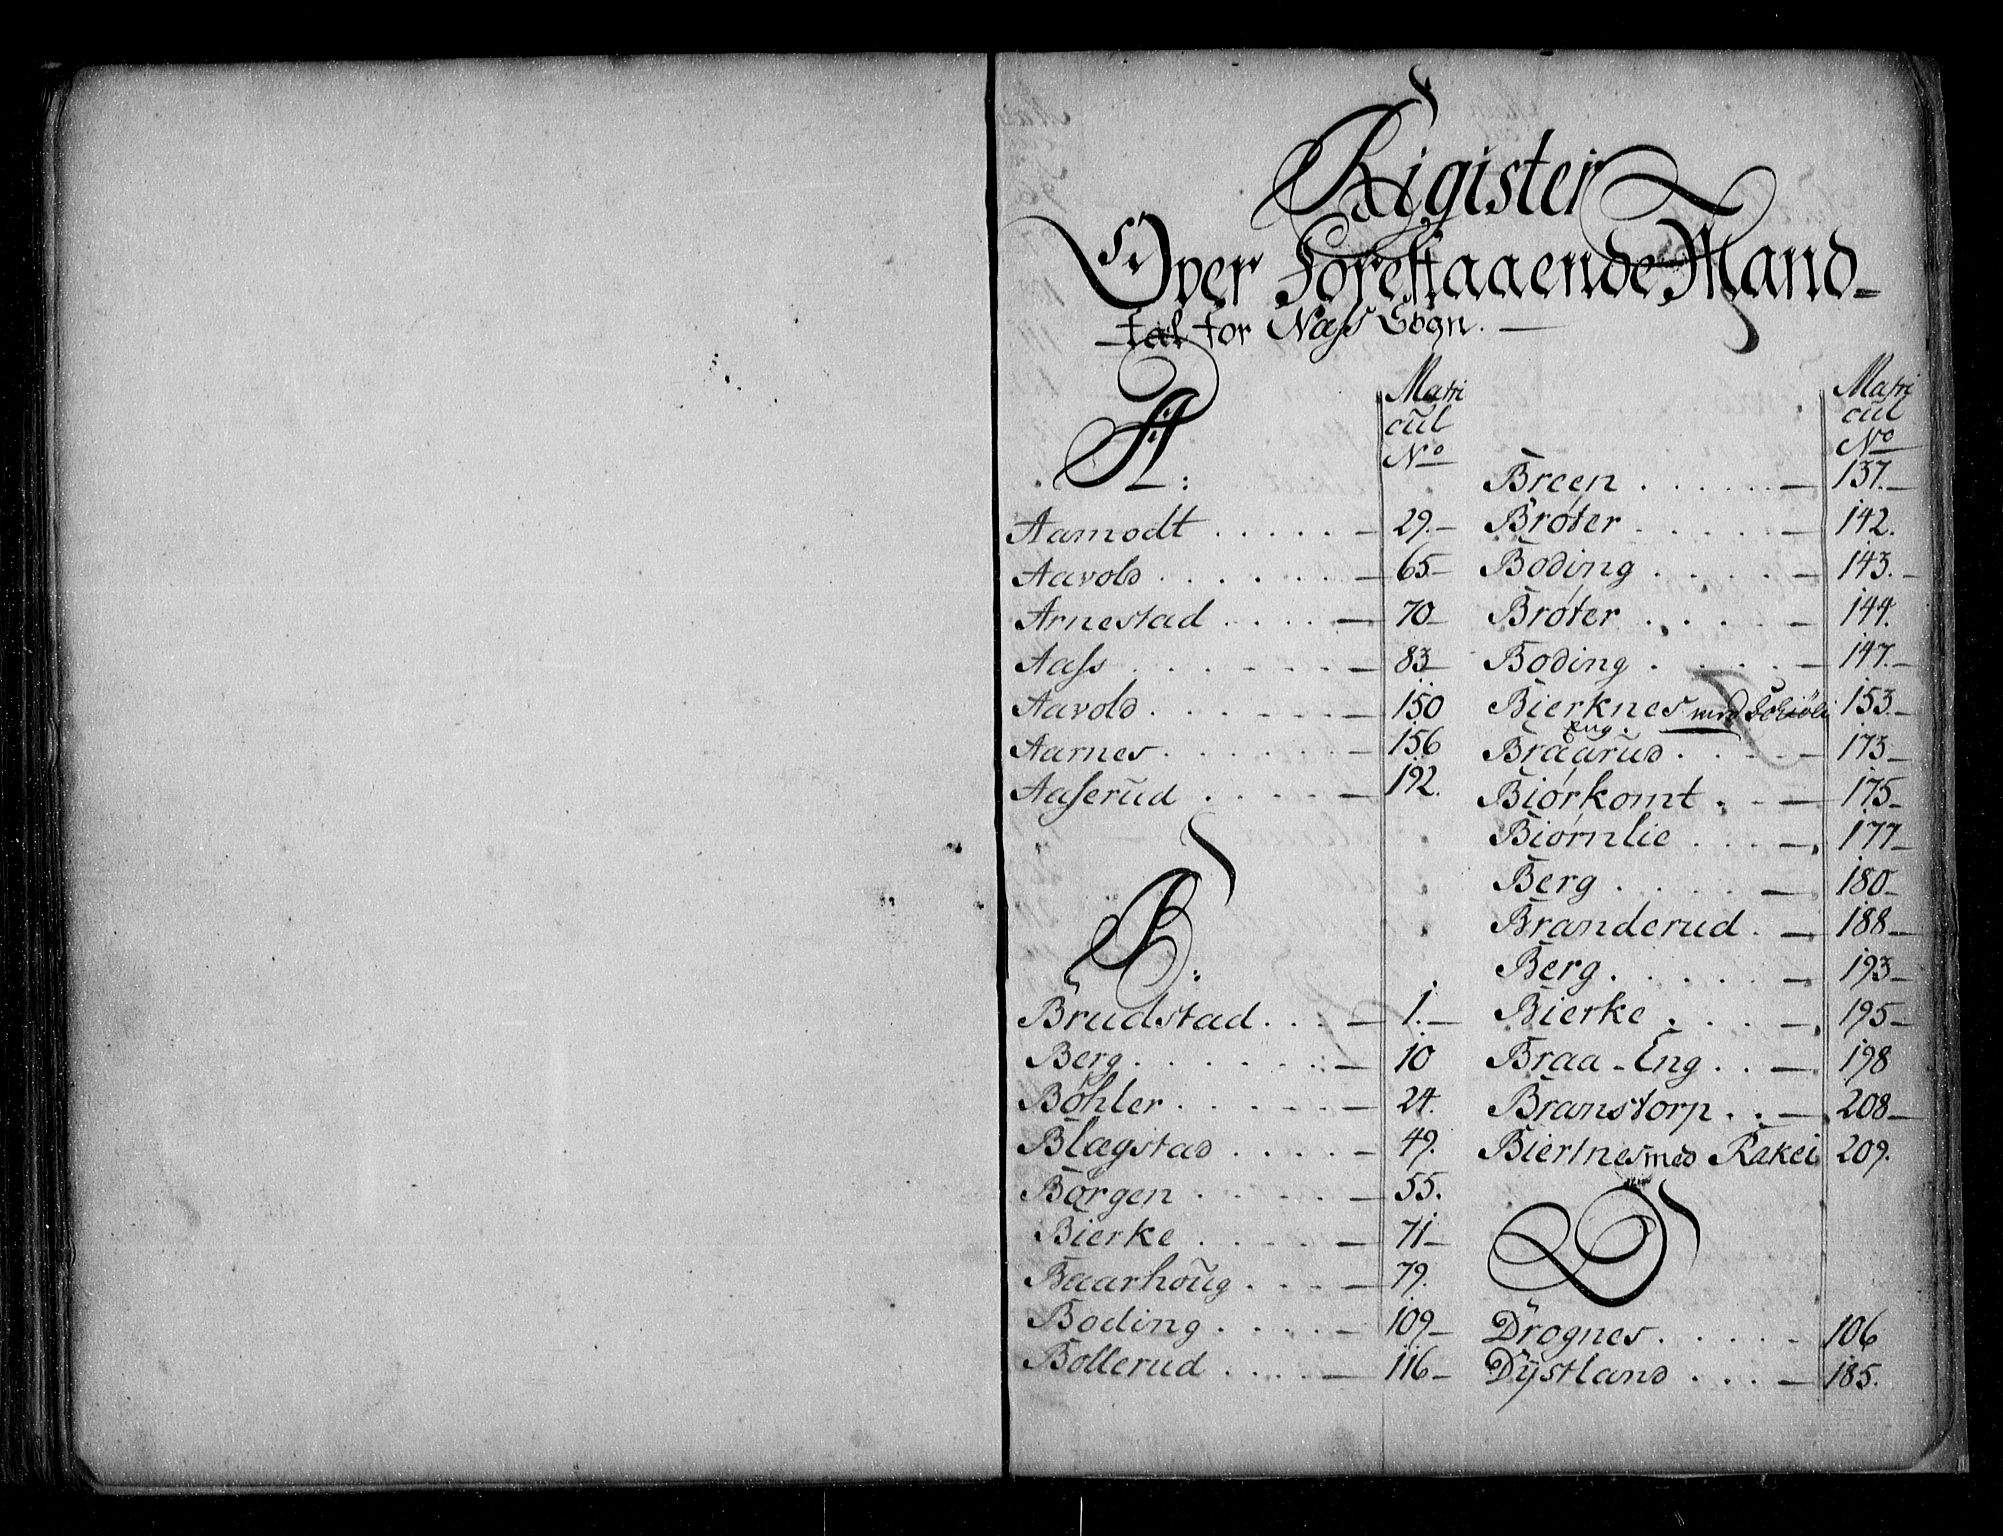 Rigister
Over Forestaaende Mand-
-tal for Næss Sogn. —
A:
Matri
cul
No
Aamodt . . . . . — 29. —
Aavold . . . . . . — 65 —
Arnestad . . . . — 70 —
Aass . . . . . . — 83 —
Aavold . . . . . — 150
Aarnes . . . . . — 156
Aaserud . . . . . — 192.
B:
Brudstad . . . — 1. —
Berg . . . . . . — 10
Bøhler . . . . . — 24.
Blagstad . . . . . 49.
Børgen . . . . . — 55.
Bierke . . . . . — 71 —
Baarhoug . . . . — 79.
Boding . . . . — 109 —
Bollerud . . . . — 116 —
Matri
cul
No
Breen . . . . . — 137. —
Brøter . . . . . — 142.
Boding . . . . . — 143. —
Brøter . . . . . — 144.
Boding . . . . . — 147. —
Bierknes med 153 —
Eng.
Braarud . . . . . — 173 —
Biørkomt . . . — 175 —
Biørnlie . . . . — 177 —
Berg . . . . . — 180 —
Branderud . . — 188 —
Berg . . . . . — 193 —
Bierke . . . . — 195 —
Braa - Eng . . — 198
Branstorp . . — 208 —
Biertnes med Rakei 209.
D
Drognes . . . . . 106
Dÿstland . . . — 185.